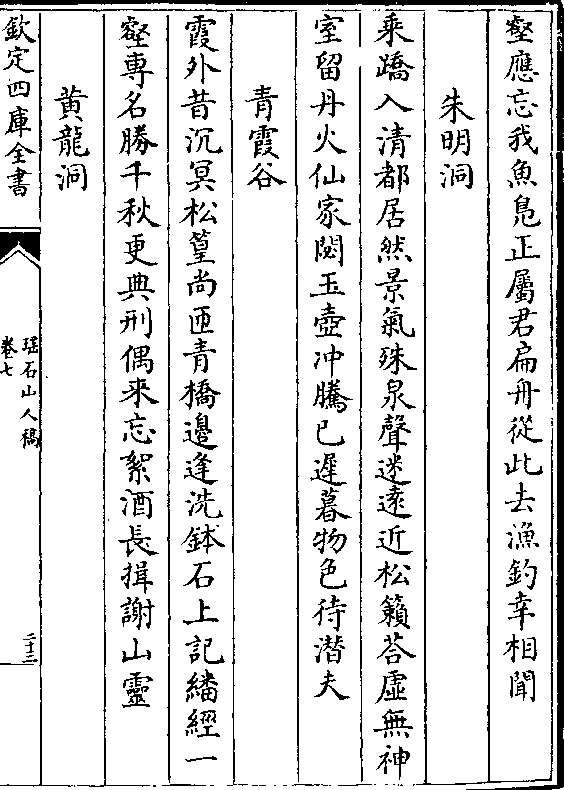 壑應忘我魚鳧正屬君扁舟從此去漁釣幸相聞
朱明洞
乘蹻入清都居然景氣殊泉聲迷遠近松籟荅虛無神
室留丹火仙家閟玉壺冲騰已遲暮物色待潜夫
青霞谷
霞外昔沉冥松篁尚匝青橋邊逢洗鉢石上記繙經一
壑專名勝千秋更典刑偶来忘絮酒長揖謝山靈
黄龍洞
欽定四庫全書
瑶石山人稿
卷七
二十二